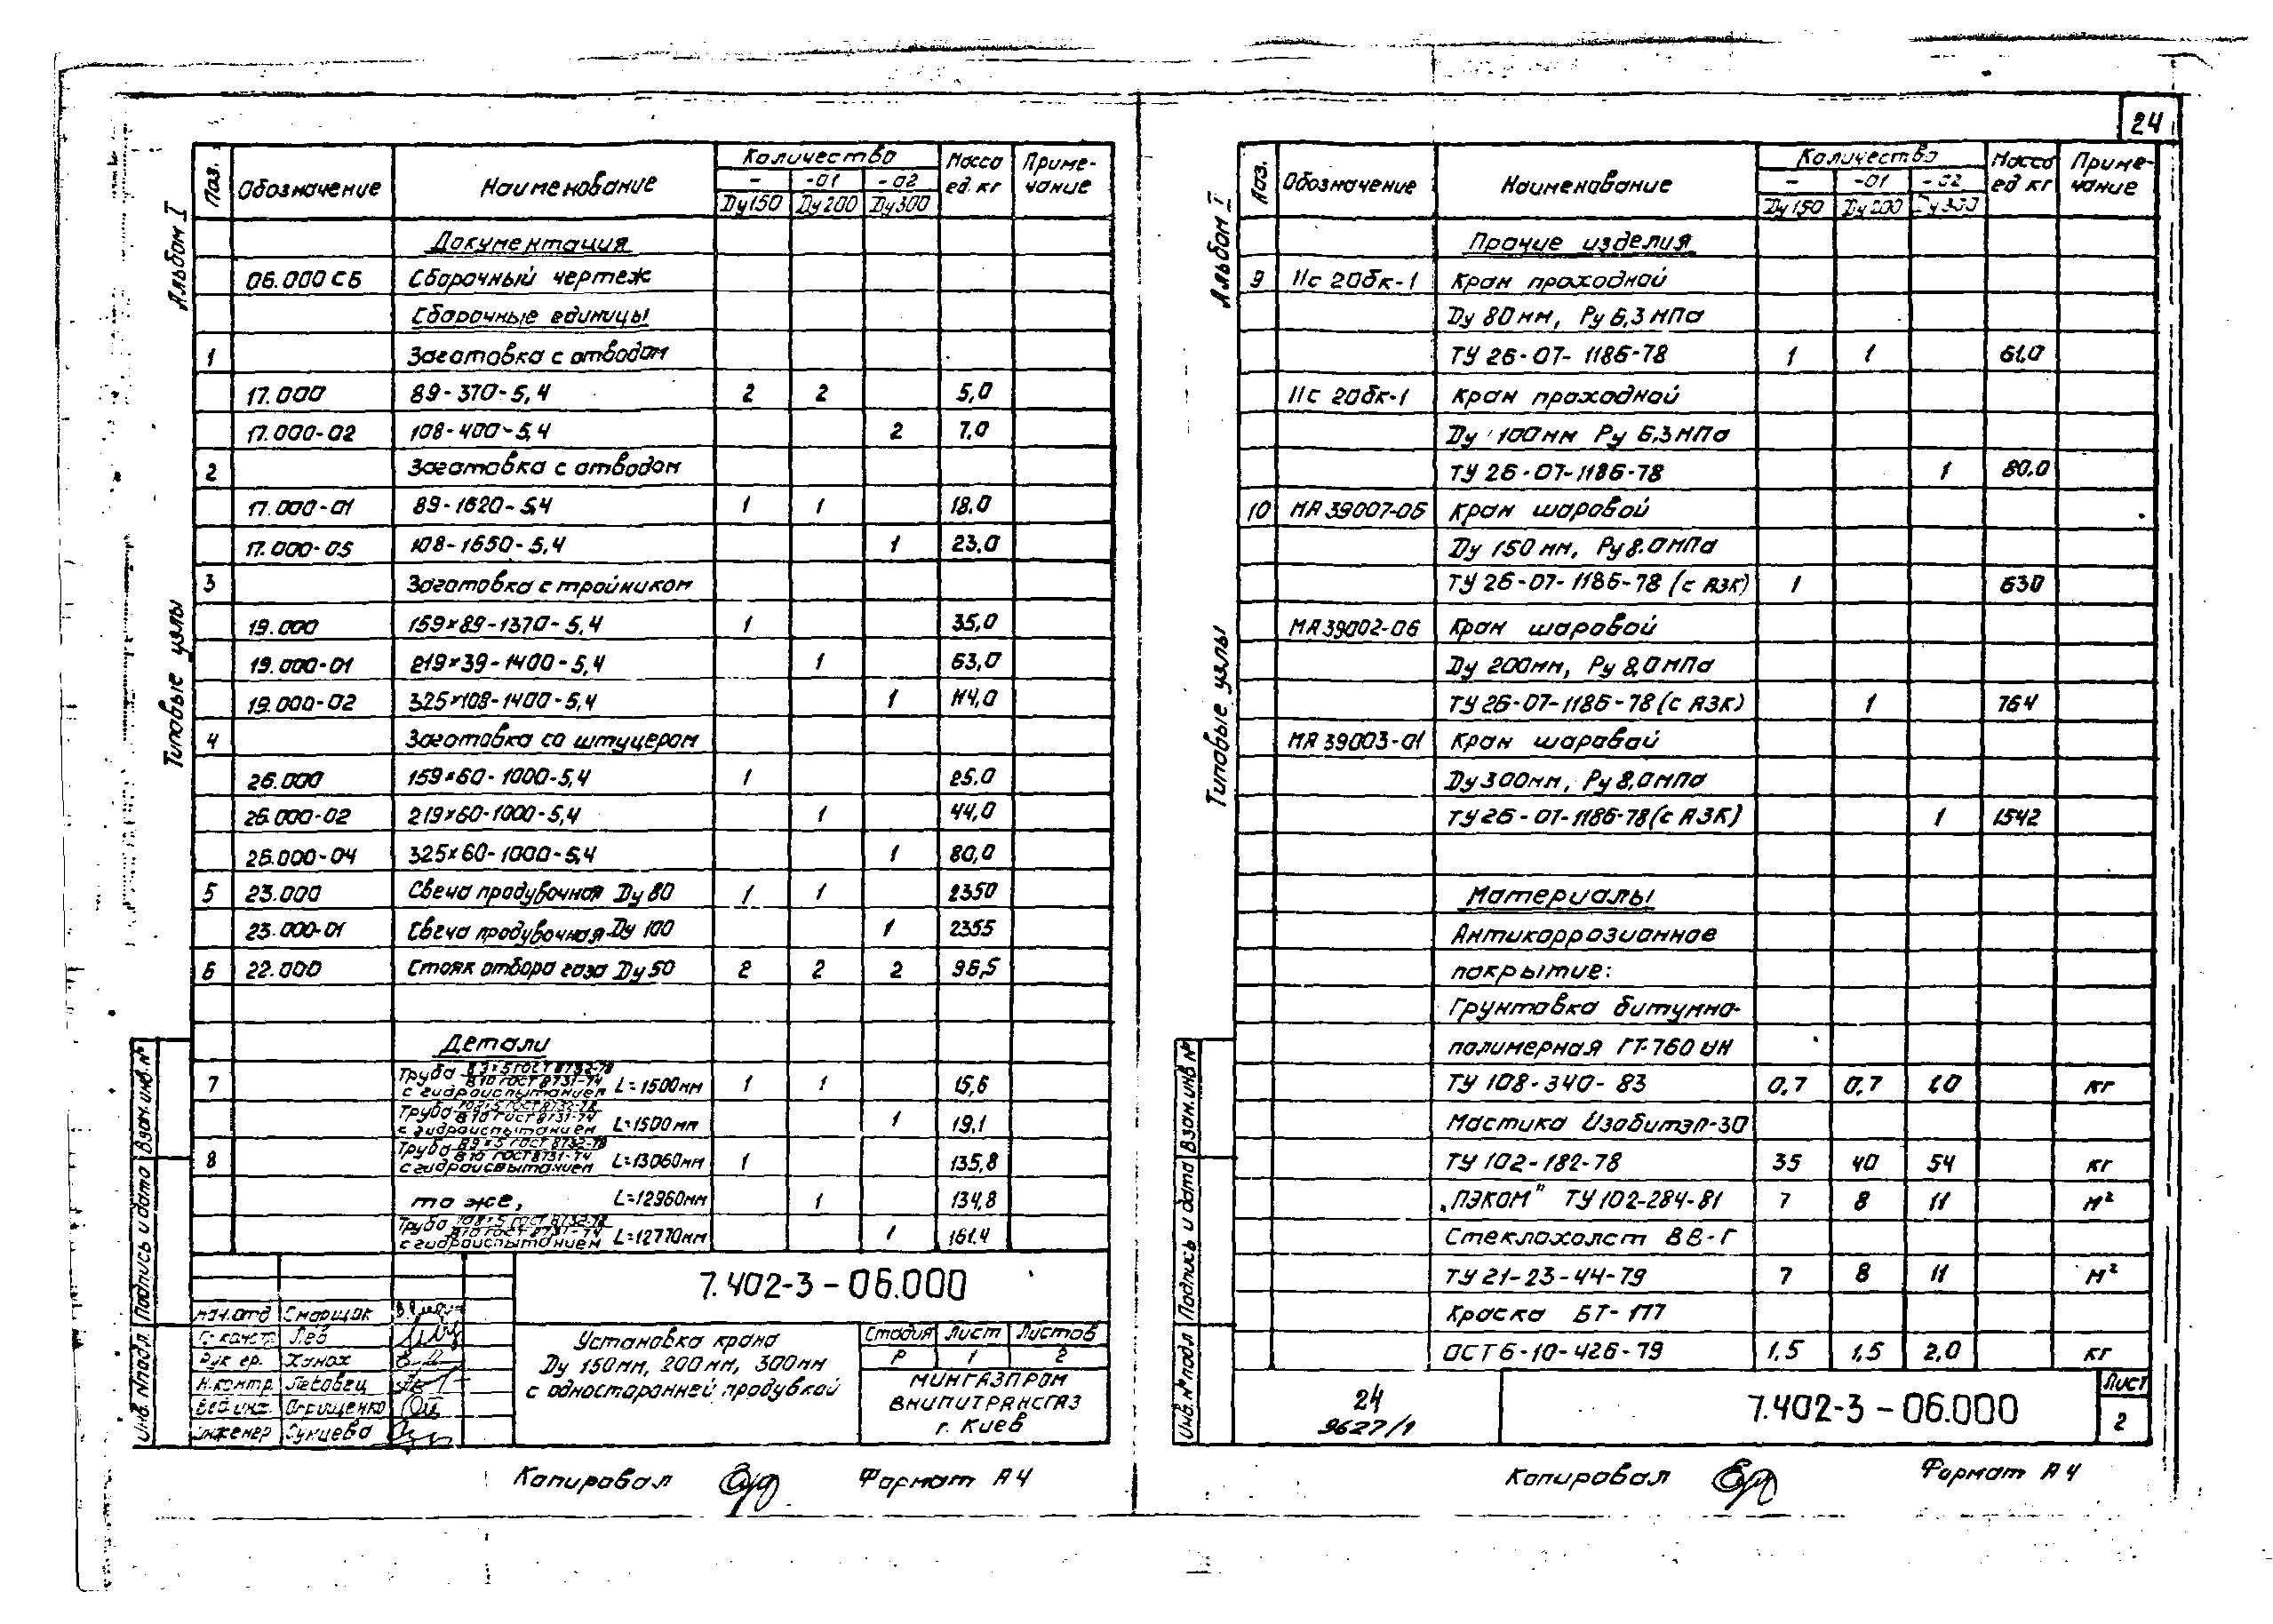 24
Альбом I
Типовые узлы
Поз. Обозначение Наименование Количество Масса ед. кг Примечание
- -01 -02
Ду150 Ду200 Ду300
Документация
06.000 СБ Сборочный чертеж
Сборочные единицы
1 Заготовка с отводом
17.000 89-370-5,4 2 2 5,0
17.000-02 108-400-5,4 2 7,0
2 Заготовка с отводом
17.000-01 89-1620-5,4 1 1 18,0
17.000-05 108-1650-5,4 1 23,0
3 Заготовка с тройником
19.000 159×89-1370-5,4 1 35,0
19.000-01 219×39-1400-5,4 1 63,0
19.000-02 325×108-1400-5,4 1 114,0
4 Заготовка со штуцером
26.000 159×60-1000-5,4 1 25,0
26.000-02 219×60-1000-5,4 1 44,0
26.000-04 325×60-1000-5,4 1 80,0
5 23.000 Свеча продувочная Ду 80 1 1 2350
23.000-01 Свеча продувочная Ду 100 1 2355
6 22.000 Стояк отбора газа Ду 50 2 2 2 96,5
Детали
7 Труба 89×5 ГОСТ 8732-78 / В10 ГОСТ 8731-74 с гидроиспытанием L=1500мм 1 1 15,6
Труба 108×5 ГОСТ 8732-78 / В10 ГОСТ 8731-74 с гидроиспытанием L=1500мм 1 19,1
8 Труба 89×5 ГОСТ 8732-78 / В10 ГОСТ 8731-74 с гидроиспытанием L=13060мм 1 135,8
то же, L=12960мм 1 134,8
Труба 108×5 ГОСТ 8732-78 / В10 ГОСТ 8731-74 с гидроиспытанием L=12770мм 1 161,4
7.402-3-06.000
Нач.отд Сморщак
Гл.констр. Лев
Рук.гр. Ханох
Н.контр. Летовец
Вед.инж. Огрищенко
Инженер Сунцева
Установка крана
Ду 150мм, 200мм, 300мм
с односторонней продувкой
Стадия Лист Листов
Р 1 2
МИНГАЗПРОМ
ВНИПИТРАНСГАЗ
г. Киев
Инв.№подл. Подпись и дата Взам.инв.№
Копировал Формат А4
Альбом I
Типовые узлы
Поз. Обозначение Наименование Количество Масса ед кг Примечание
- -01 -02
Ду 150 Ду 200 Ду 300
Прочие изделия
9 11с 20бк-1 Кран проходной
Ду 80 мм, Ру 6,3 МПа
ТУ 26-07-1186-78 1 1 61,0
11с 20бк-1 Кран проходной
Ду 100мм Ру 6,3 МПа
ТУ 26-07-1186-78 1 80,0
10 МА 39007-05 Кран шаровой
Ду 150 мм, Ру 8.0 МПа
ТУ 26-07-1186-78 (с АЗК) 1 630
МА 39002-06 Кран шаровой
Ду 200мм, Ру 8,0 МПа
ТУ 26-07-1186-78 (с АЗК) 1 764
МА 39003-01 Кран шаровой
Ду 300мм, Ру 8,0 МПа
ТУ 26-07-1186-78 (с АЗК) 1 1542
Материалы
Антикоррозионное
покрытие:
Грунтовка битумно-
полимерная ГТ-760 ИН
ТУ 108-340-83 0,7 0,7 1,0 кг
Мастика Изобитэп-30
ТУ 102-182-78 35 40 54 кг
„ПЭКОМ" ТУ 102-284-81 7 8 11 м²
Стеклохолст ВВ-Г
ТУ 21-23-44-79 7 8 11 м²
Краска БТ-177
ОСТ 6-10-426-79 1,5 1,5 2,0 кг
24
9627/1
7.402-3-06.000
Лист
2
Инв.№подл Подпись и дата Взам.инв №
Копировал Формат А4